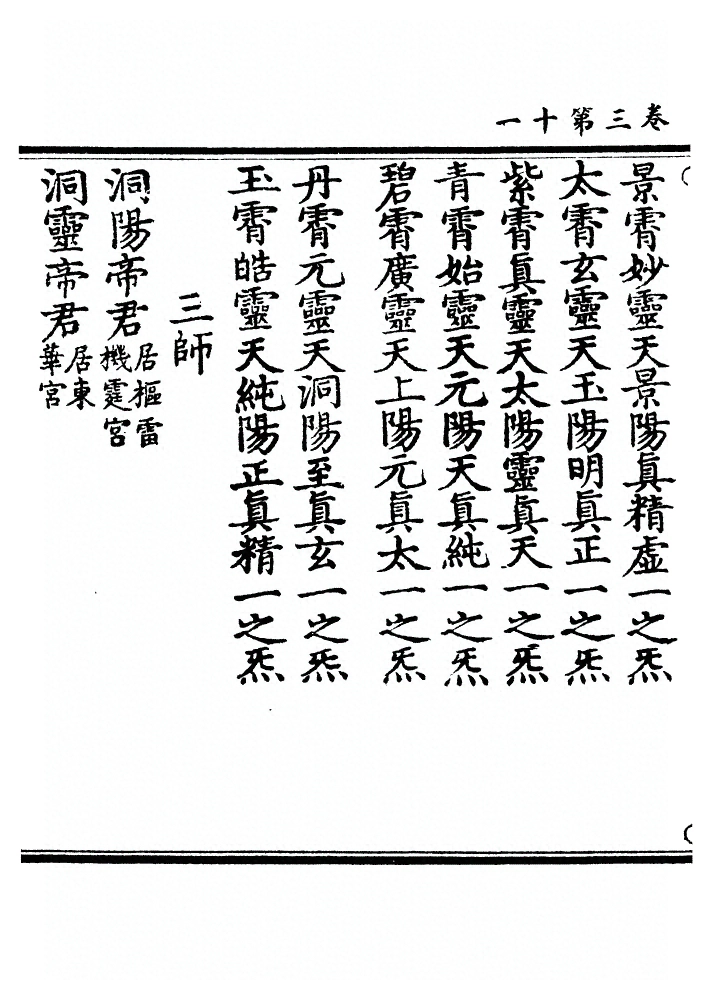 卷三第十一
景霄妙靈天景陽眞精虛一之炁
太霄玄靈天玉陽明眞正一之炁
紫霄眞靈天太陽靈眞天一之炁
青霄始靈天元陽天眞純一之炁
碧霄廣靈天上陽元眞太一之炁
丹霄元靈天洞陽至眞玄一之炁
玉霄皓靈天純陽正眞精一之炁
三師
洞陽帝君居樞雷機霆宮
洞靈帝君居東華宮